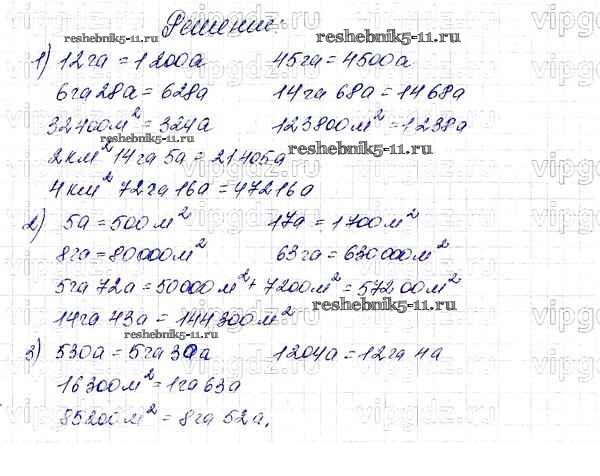 Решение:
reshebnik5-11.ru reshebnik5-11.ru
1) 12га = 1200а 45га = 4500а
6га 28а = 628а 14га 68а = 1468а
32400м² = 324а 123800м² = 1238а
reshebnik5-11.ru reshebnik5-11.ru
2км² 14га 5а = 21405а
4км² 72га 16а = 47216а
2) 5а = 500м² 17а = 1700м²
8га = 80000м² 63га = 630000м²
5га 72а = 50000м² + 7200м² = 57200м²
reshebnik5-11.ru
14га 43а = 144300м²
reshebnik5-11.ru
3) 530а = 5га 30а 1204а = 12га 4а
16300м² = 1га 63а
85200м² = 8га 52а.
vipgdz.ru